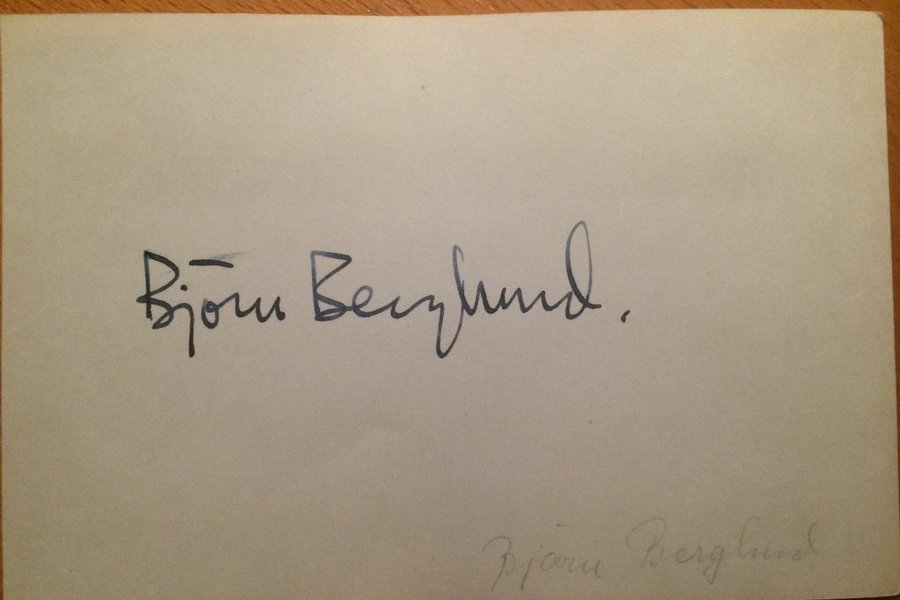 Björn Berglund.
Björn Berglund